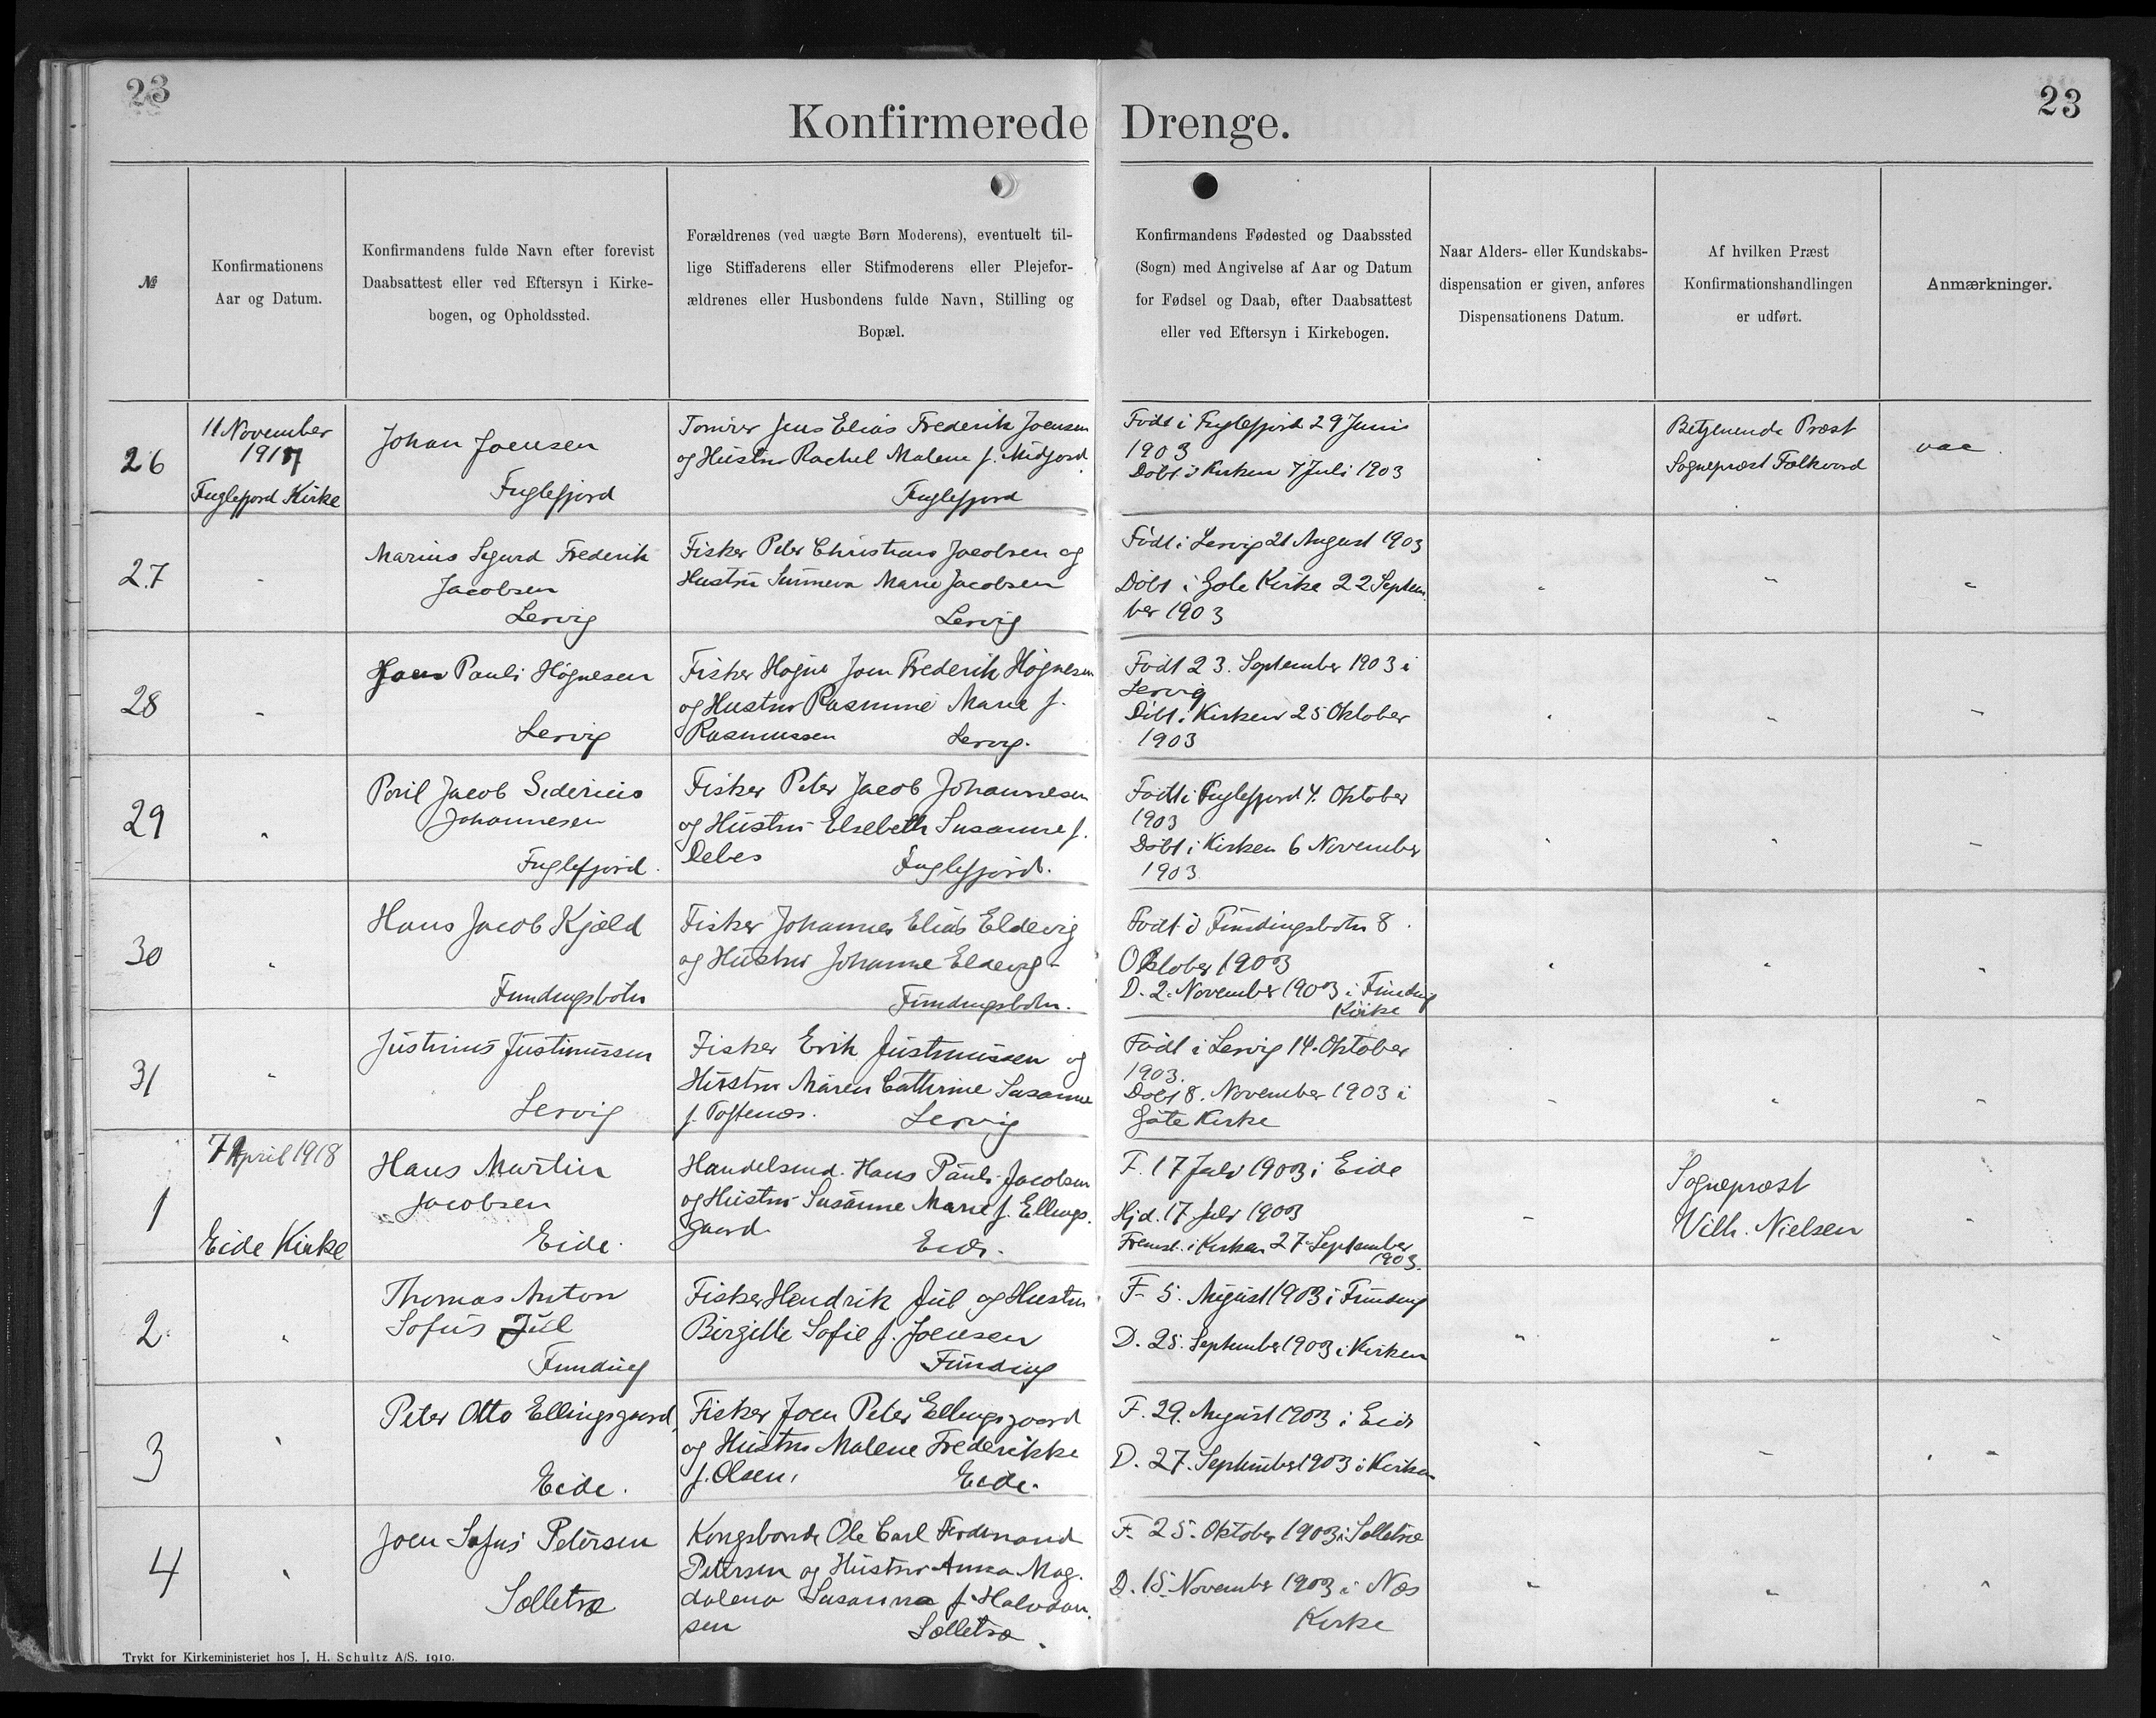 23
23
Konfirmerede Drenge.
№
Konfirmationens
Aar og Datum.
Konfirmandens fulde Navn efter forevist
Daabsattest eller ved Eftersyn i Kirke-
bogen, og Opholdssted.
Forældrenes (ved uægte Børn Moderens), eventuelt til-
lige Stiffaderens eller Stifmoderens eller Plejefor-
ældrenes eller Husbondens fulde Navn, Stilling og
Bopæl.
Konfirmandens Fødested og Daabssted
(Sogn) med Angivelse af Aar og Datum
for Fødsel og Daab, efter Daabsattest
eller ved Eftersyn i Kirkebogen.
Naar Alders- eller Kundskabs-
dispensation er given, anføres
Dispensationens Datum.
Af hvilken Præst
Konfirmationshandlingen
er udført.
Anmærkninger.
26
11 November
1917
Fuglefjord Kirke
Johan Joensen
Fuglefjord
Tømrer Jens Elias Frederik Joensen
og Hustru Rachel Malene f. Midjord
Fuglefjord
Født i Fuglefjord 29 Juni
1903
Døbt i Kirken 7 Juli 1903
Betjenende Præst
Sognepræst Falkvord
27
Marius Sigurd Frederik
Jacobsen
Lervig
Fisker Peter Christians Jacobsen og
Hustru Sunneva Marie Jacobsen
Lervig
Født i Lervig 21 August 1903
Døbt i Gøte Kirke 22 Septem
ber 1903
28
Joen Pauli Høgnesen
Lervig
Fisker Høgne Joen Frederik Høgnesen
og Hustru Rasmine Marie f.
Rasmussen
Lervig.
Født 23. September 1903 i
Lervig
Døbt i Kirken 25 Oktober
1903
29
Poul Jacob Siderius
Johannesen
Fuglefjord.
Fisker Peter Jacob Johannesen
og Hustru Elsebeth Susanne f.
Debes
Fuglefjord.
Født i Fuglefjord 4. Oktober
1903
Døbt i Kirken 6 November
1903
30
Hans Jacob Kjæld
Fundingsbotn
Fisker Johannes Elias Eldevig
og Hustru Johanne Eldevig
Fundingsbotn.
Født i Fundingsbotn 8.
Oktober 1903
D. 2. November 1903 i Funding
Kirke
31
Justinus Justinussen
Lervig
Fisker Erik Justinussen og
Hustru Maren Cathrine Susanne
f. Toftenæs.
Lervig
Født i Lervig 14. Oktober
1903.
Døbt 8. November 1903 i
Gøte Kirke
1
7 April 1918
Eide Kirke
Hans Martin
Jacobsen
Eide.
Handelsmd. Hans Pauli Jacobsen
og Hustru Susanne Marie f. Ellings
gaard.
Eide.
F. 17 Juli 1903 i Eide
Hjd. 17 Juli 1903
Fremst. i Kirken 27 September
1903.
Sognepræst
Vilh. Nielsen
2
Thomas Anton
Sofus Jul
Funding
Fisker Hendrik Jul og Hustru
Birgitte Sofie f. Joensen
Funding
F. 5. August 1903 i Funding
D. 25. September 1903 i Kirken
3
Peter Otto Ellingsgaard,
Eide.
Fisker Joen Peter Ellingsgaard
og Hustru Malene Frederikke
f. Olsen,
Eide.
F. 29. August 1903 i Eide
D. 27. September 1903 i Kirken
4
Joen Sofus Petersen
Selletræ
Kongsbonde Ole Carl Ferdinand
Petersen og Hustru Anna Mag.
dalena Susanna f. Halvdan.
sen
Selletræ.
F. 25. Oktober 1903 i Selletræ
D. 15. November 1903 i Næs
Kirke
Trykt for Kirkeministeriet hos J. H. Schultz A/S. 1910.